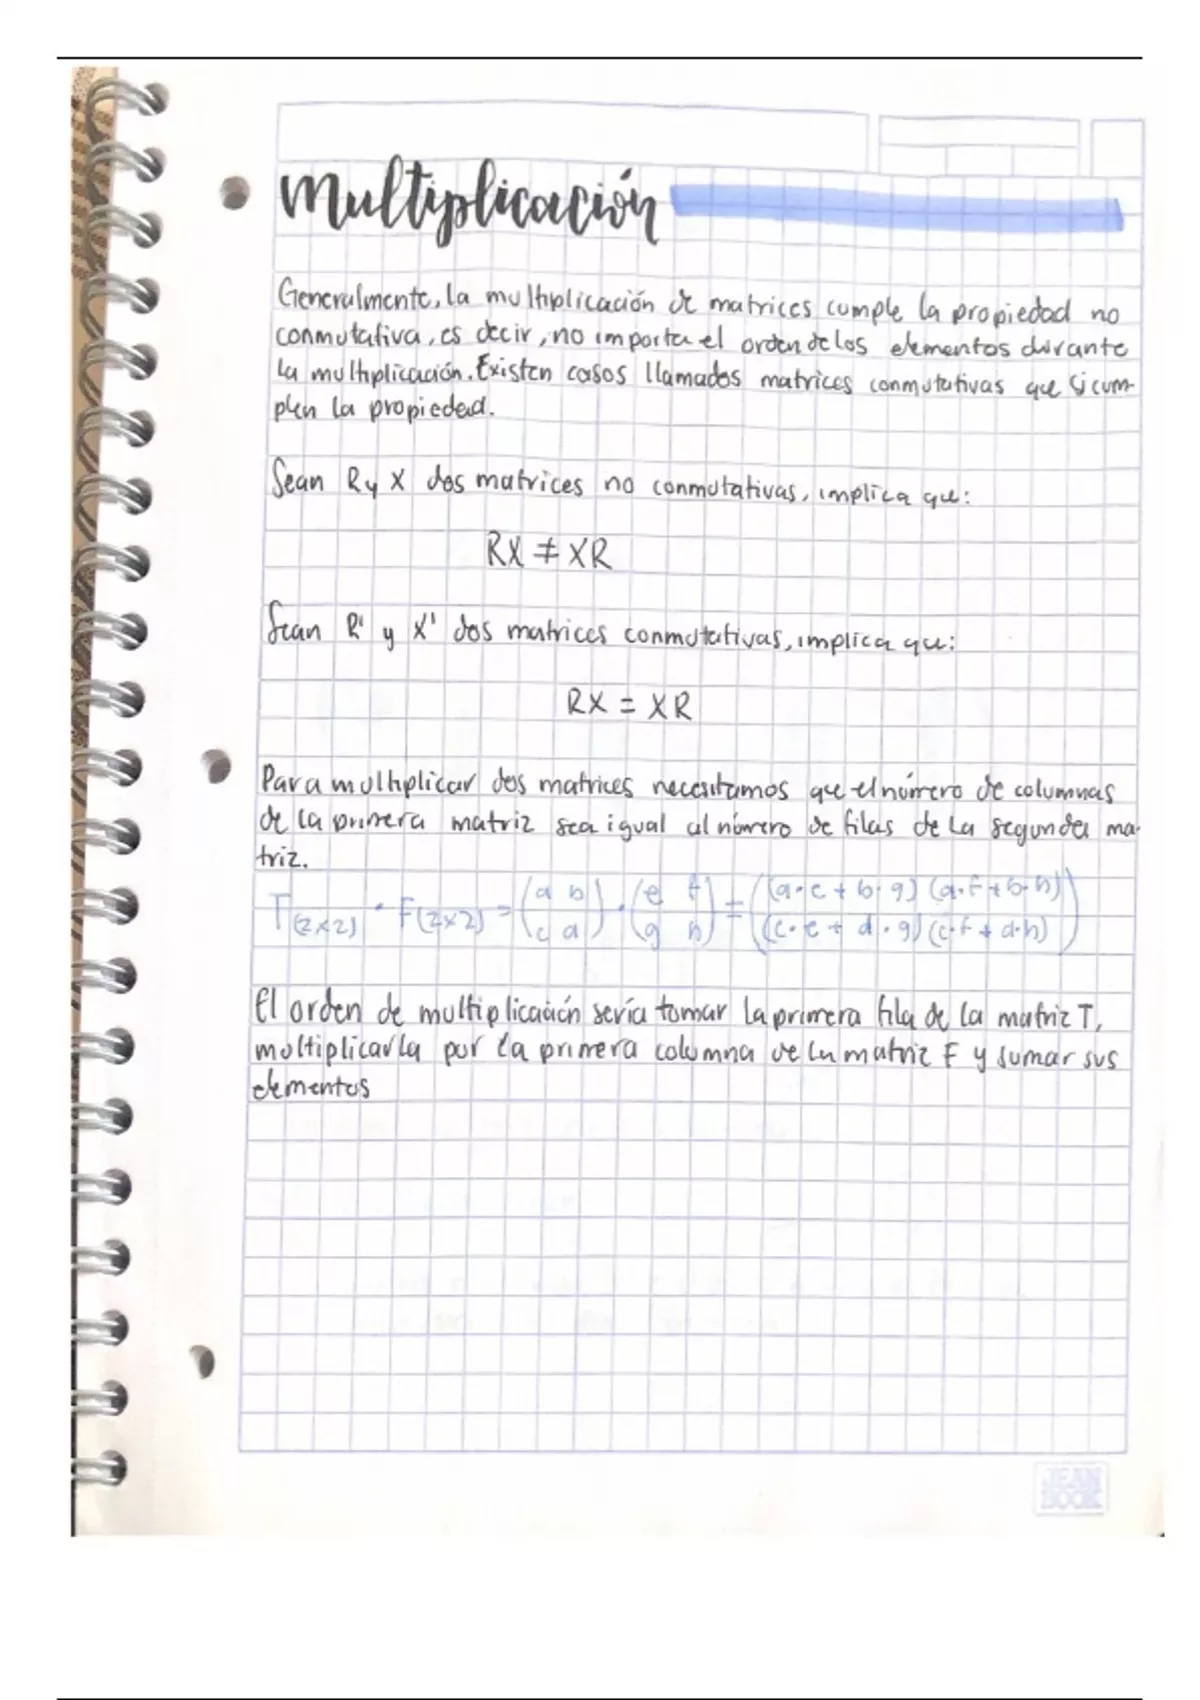 Multiplicación
Generalmente, la multiplicación de matrices cumple la propiedad no
conmutativa, es decir, no importa el orden de los elementos durante
la multiplicación. Existen casos llamados matrices conmutativas que si cum-
plen la propiedad.
Sean R y X dos matrices no conmutativas, implica que:
RX ≠ XR
Sean R' y X' dos matrices conmutativas, implica que:
RX = XR
Para multiplicar dos matrices necesitamos que el número de columnas
de la primera matriz sea igual al número de filas de la segunda ma-
triz.
T(2x2) · F(2x2) = (a b) · (e f) = ((a·e + b·g) (a·f + b·h))
(c d) (g h) ((c·e + d·g) (c·f + d·h))
El orden de multiplicación sería tomar la primera fila de la matriz T,
multiplicarla por la primera columna de la matriz F y sumar sus
elementos
JEAN
BOOK